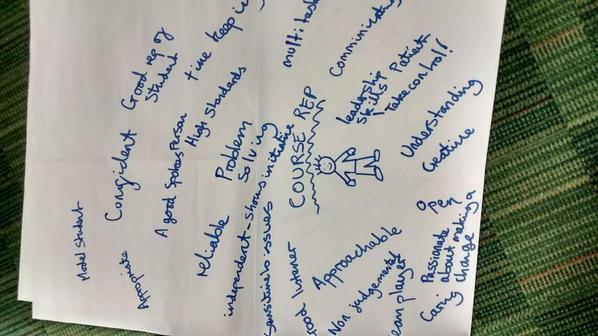 time keepi
multitask
Comminicatin
Good rep of
student
High Standards
leadership
skills
Patient
Take control!
Confident
A good spokes person
Problem
Solving
COURSE REP
Understanding
Creative
Model Student
Appropriate
reliable
independent - shows initiative
Sensitive to issues
ood listener
Approachable
Non judgemental
Open
Passionate
about making a
change
Caring